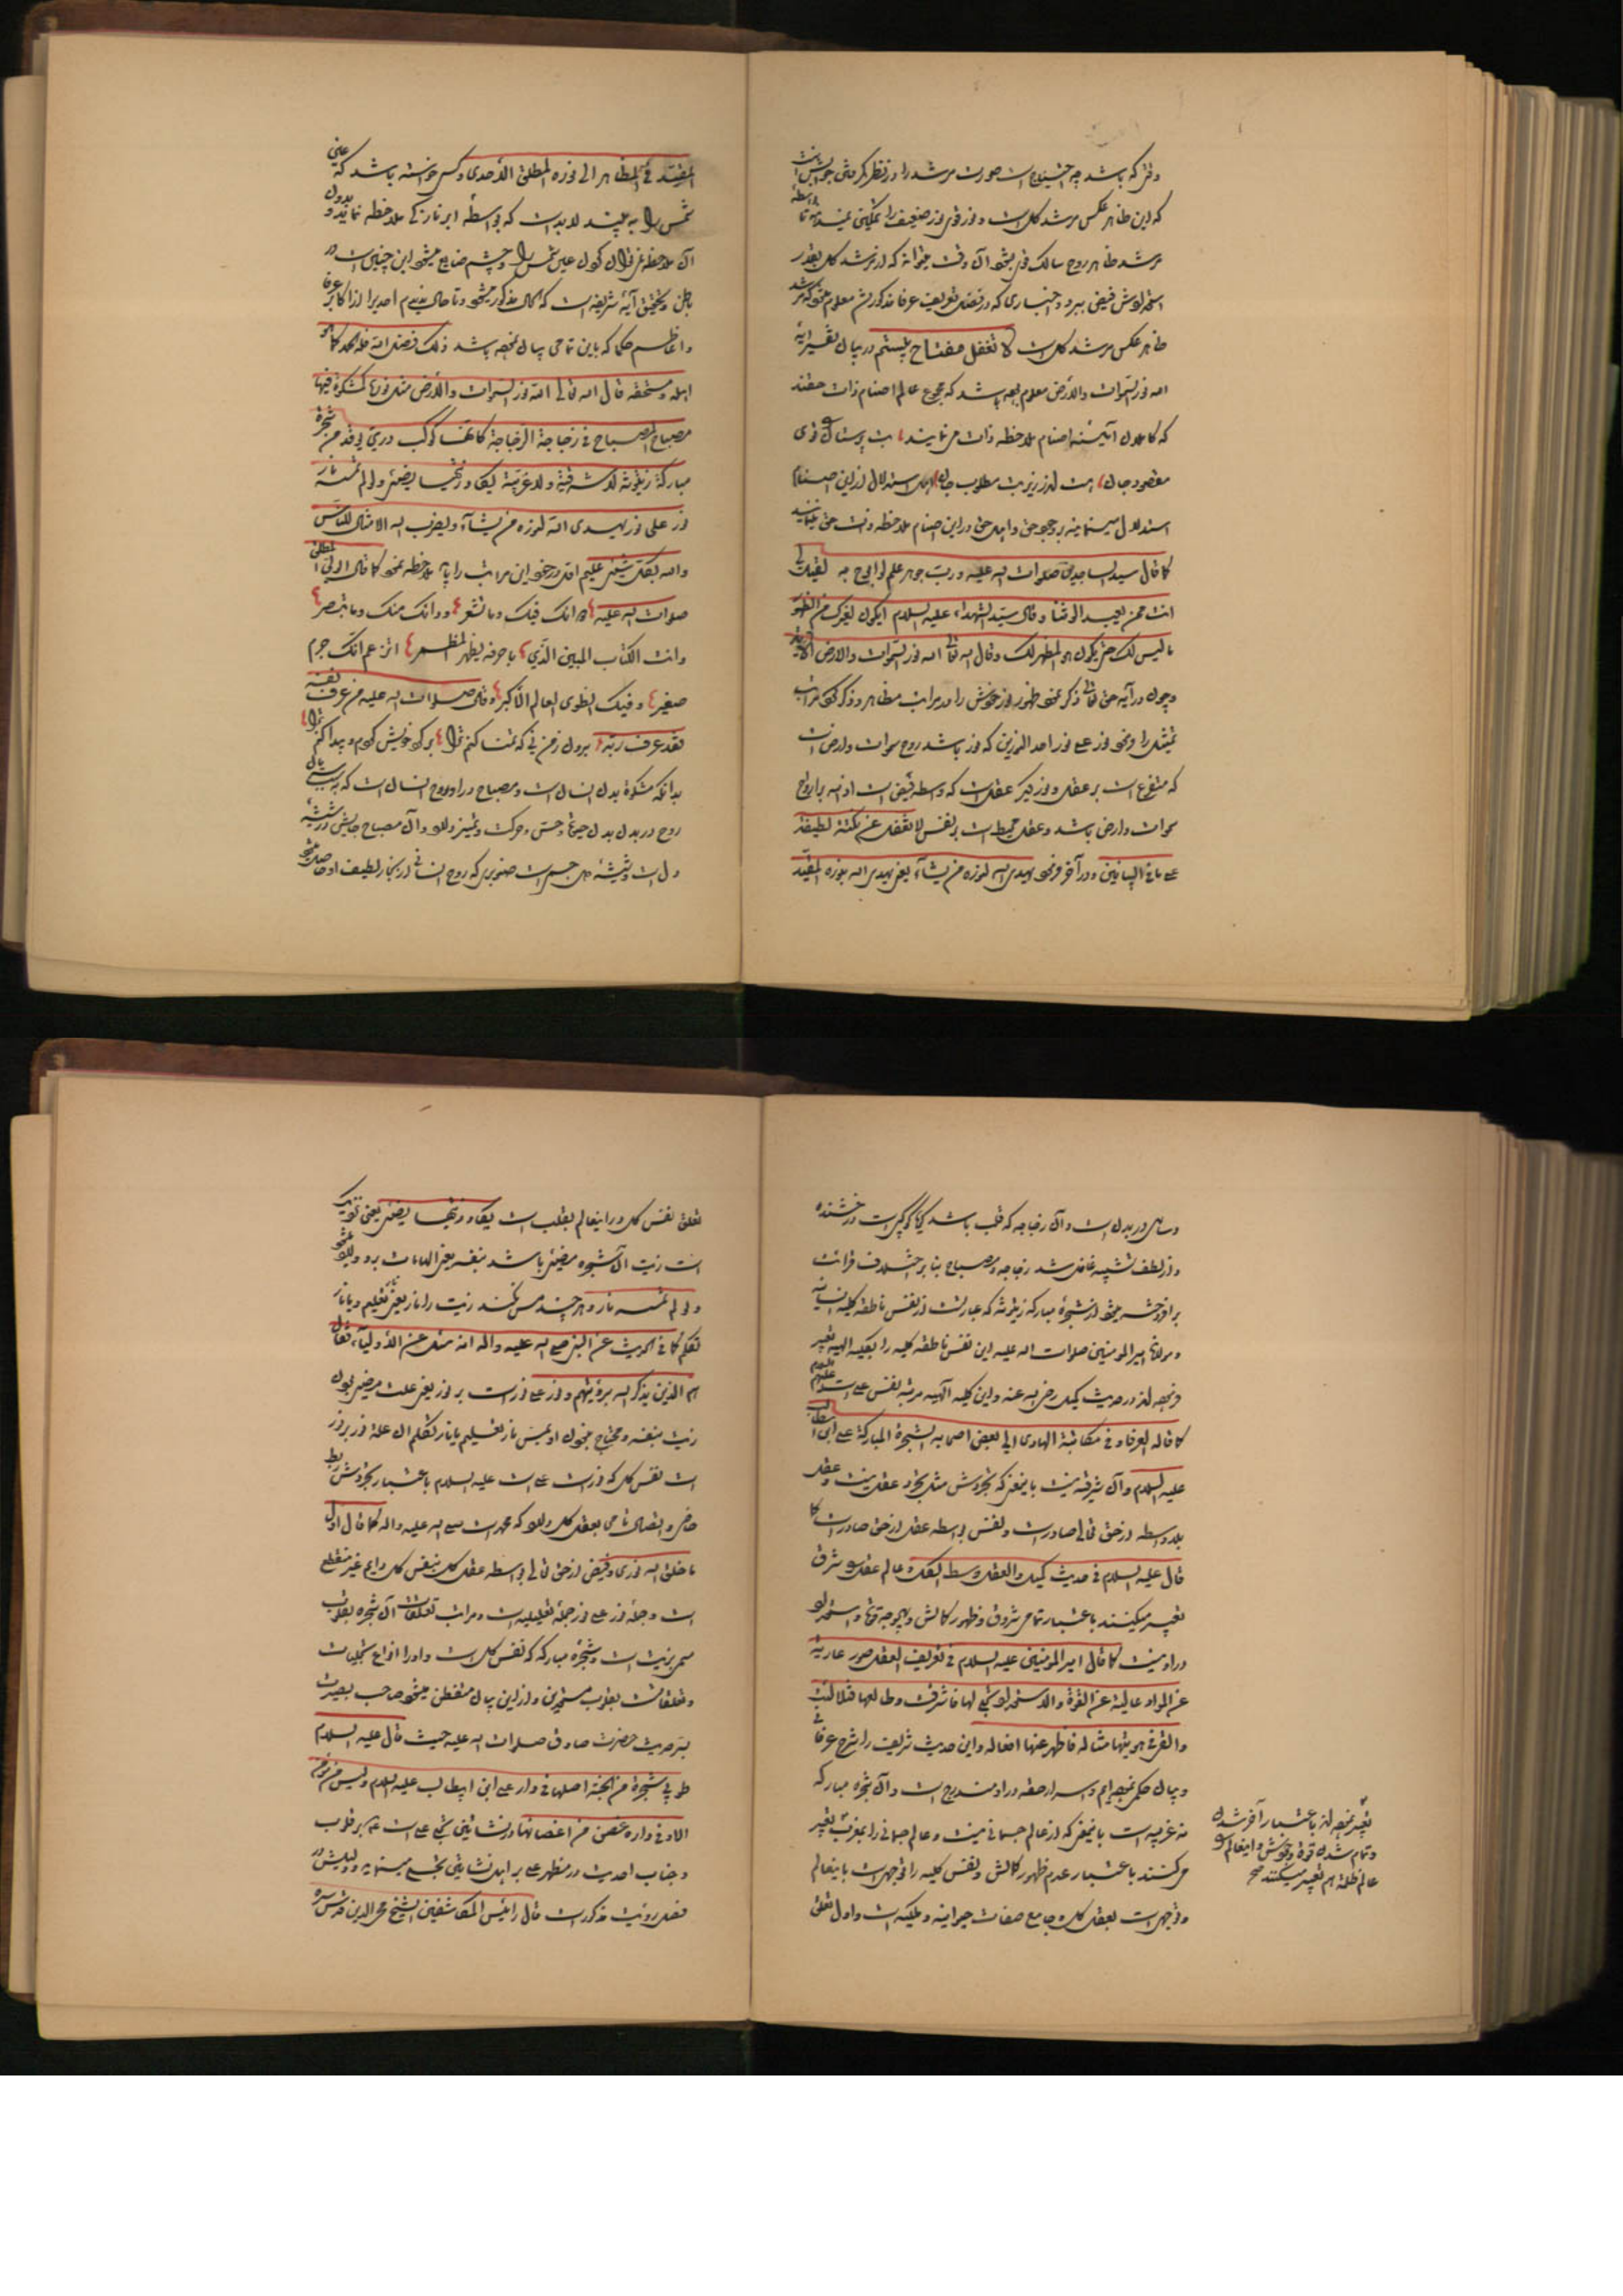 وقتی که باشد چه احتیاج است صورت مرشد را در نظر گرفتن جوابش آنست
که این ظاهر عکس مرشد کل است و نور قوی نور ضعیف را تمکین نمیدهد تا بواسطه
مرشد ظاهر روح سالک قوی بشود آن وقت میتواند که از مرشد کل بقدر
استعدادش فیض ببرد و اخباری که در فصل تعریف عرفا مذکور شد معلوم میشود که مرشد
ظاهر عکس مرشد کل است لا تغفل مفتاح بیستم در بیان تفسیر آیه
الله نور السموات والارض معلوم بوده باشد که مجموع عالم اصنام ذات حقند
که کاملان آئینه اصنام ملاحظه ذات می نمایند بت پرستان
مقصود جان است مطلوب جان اهل استدلال از این اصنام
استدلال مینمایند بر وجود حق و اهل حق در این اصنام ملاحظه ذات حق نمایند
کما قال سید الساجدین صلوات الله علیه و رب جوهر علم لو ابوح به لقیل لی
انت ممن یعبد الوثنا و قال سید الشهداء علیه السلام ایکون لغیرک من الظهور
ما لیس لک حتی یکون هو المظهر لک و قال الله تعالی الله نور السموات والارض الآیه
و چون در آیه حق تعالی ذکر نمود ظهور نور خویش را در مراتب مظاهر و ذکر نمود مراتب
تمثیل را و نمود نور علی نور احد النورین که نور باشد روح سموات و ارض است
که متفرع است بر عقل و نور دیگر عقل است که واسطه فیض است از الله بر ارواح
سموات و ارض باشد و عقل محیط است بر نفس لا تغفل عن نکتة لطیفة
علی ما فی البیانین و در آخر فرمود یهدی الله لنوره من یشاء یعنی یهدی الله بنوره المقید
المقید فی المظاهر الی نوره المطلق الأحدی و کس خواسته باشد که عین
شمس را به بیند لا بد است که بواسطه ابر نازکی ملاحظه نماید و بدون
آن ملاحظه نمیتوان کرد عین شمس را و چشم ضایع میشود این چنین است در
باطن و تحقیق آیه شریفه است که الحال مذکور میشود و تا حال ندیدم احدی را از اکابر عرفا
و اعاظم حکما که باین تمامی بیان نموده باشد ذلک فضل الله فله الحمد کما هو
اهله و مستحقه قال الله تعالی الله نور السموات والأرض مثل نوره کمشکوة فیها
مصباح المصباح فی زجاجة الزجاجة کانها کوکب دری یوقد من شجرة
مبارکة زیتونة لا شرقیة ولا غربیة یکاد زیتها یضیئ ولو لم تمسسه نار
نور علی نور یهدی الله لنوره من یشآء ویضرب الله الامثال للناس
والله بکل شیئ علیم اول در خود این مراتب را باید ملاحظه نمود کما قال الولی المطلق
صلوات الله علیه دوائک فیک وما تشعر ودائک منک وما تبصر
وانت الکتاب المبین الذی باحرفه یظهر المضمر اتزعم انک جرم
صغیر وفیک انطوی العالم الأکبر وقال صلوات الله علیه من عرف نفسه
فقد عرف ربه
بدانکه مشکوة بدن انسان است و مصباح در او روح انسان است که
روح در بدن بدن حیوة و حس و حرکت و تمیز دارد و آن مصباح جایش در شیشه
دل است و شیشه دل جسم است صنوبری که روح انسانی از بخار لطیف او حاصل میشود
و ساری در بدن است و آن زجاجه که قلب باشد گویا کوکبی است درخشنده
برافروخته میشود از شجره مبارکه زیتونه که عبارتست از نفس ناطقه کلیه انسانیه
و مولانا امیر المومنین صلوات الله علیه این نفس ناطقه کلیه را بکلیه الهیه تعبیر
فرموده اند در حدیث کمیل رضی الله عنه و این کلیه الهیه مرتبه نفس علی است علیه السلام
کما قاله العرفا و فی مکاتبة الهادی الی بعض اصحابه الشجرة المبارکة علی ابن ابی طالب
علیه السلام و آن شرقیه نیست باینمعنی که تجردش مثل تجرد عقل نیست و عقل
بلا واسطه از حق تعالی صادر است و نفس بواسطه عقل از حق صادر است کما
قال علیه السلام فی حدیث کمیل والعقل وسط الکل و عالم عقل را شرق
تعبیر میکنند باعتبار تمامی شروق و ظهور کمالش
در او نیست کما قال امیر المؤمنین علیه السلام فی تعریف العقل صور عاریة
عن المواد عالیة عن القوة والاستعداد تجلی لها فاشرقت وطالعها فتلألئت
والقی فی هویتها مثاله فاظهر عنها افعاله و این حدیث شریف را شرح عرفانی
و بیان حکمی نموده ایم و اسرار حقه در او مندرج است و آن شجره مبارکه
نه غربیه است باینمعنی که از عالم جسمانی نیست و عالم جسمانی را بمغرب تعبیر
میکنند باعتبار عدم ظهور کمالش و نفس کلیه را توجهی است باینعالم
و توجهی است بعقل کل و جامع صفات حیوانیه و ملکیه است و اول تعلق
تعبیر نموده اند باعتبار آخر شدن
و تمام شدن قوة وجودش و اینعالم را
عالم ظلمة هم تعبیر میکنند صح
تعلق نفس کل در اینعالم بقلب است یکاد زیتها یضیئ یعنی نزدیک
است زیت آن شجره مضیئ باشد بنفسه یعنی الهامات
ولو لم تمسسه نار و هر چند مس نکند زیت را نار یعنی تعلیم و یا نار
تکلم کما فی الحدیث عن النبی صلی الله علیه واله انه سئل عن الأولیآء فقال
هم الذین یذکر الله برؤیتهم و نور علی نور است
زیت بنفسه و محتاج نبودن او بمس نار تعلیم یا نار تکلم آن علة نور بر نور
است نفس کل که نور است علی است علیه السلام باعتبار تجردش ربط
خاص و اتصال تامی بعقل کل دارد که محمد است صلی الله علیه واله کما قال اول
ما خلق الله نوری و فیض از حق تعالی بواسطه عقل کل بنفس کل دایم غیر منقطع
است و جمله نور علی نور جمله تعلیلیه است و مراتب تعلقات آن شجره بقلوب
مسمی بزیت است و شجره مبارکه که نفس کل است و او را انواع تجلیات
و تعلقاتست بقلوب مستعدین و از این بیان متفطن میشود صاحب بصیرت
بسر حدیث حضرت صادق صلوات الله علیه حیث قال علیه السلام
طوبی شجرة من الجنة اصلها فی دار علی ابن ابیطالب علیه السلام ولیس من مؤمن
الا وفی داره غصن من اغصانها
و جناب احدیت در مظهر علی بر اهل نشأتین تجلی مینماید و دلیلش در
فصل رؤیت مذکور است قال رئیس المکاشفین الشیخ محی الدین قدس سره